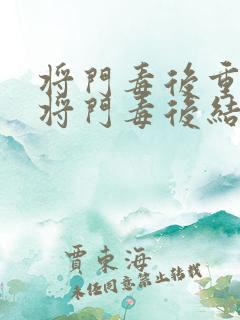 將門毒後重
將門毒後結
賈東海
未经同意禁止转载